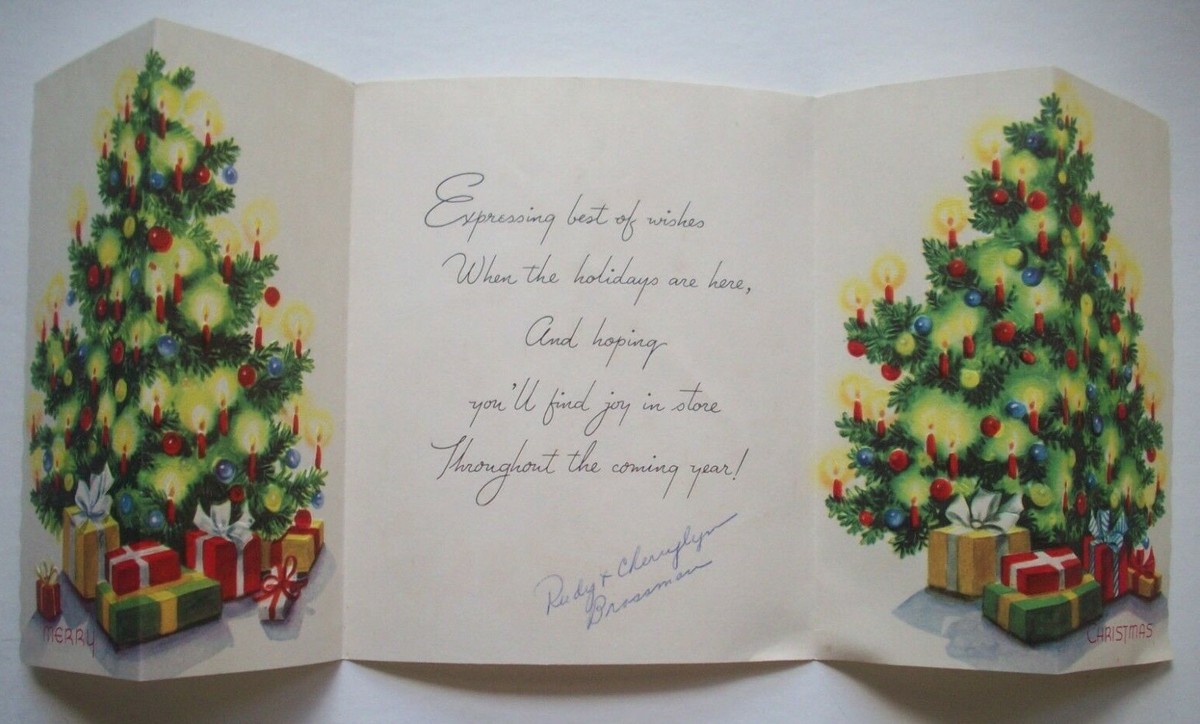 Expressing best of wishes
When the holidays are here,
And hoping
you'll find joy in store
Throughout the coming year!
Rudy + Cherrylyn
Brossman
MERRY
CHRISTMAS